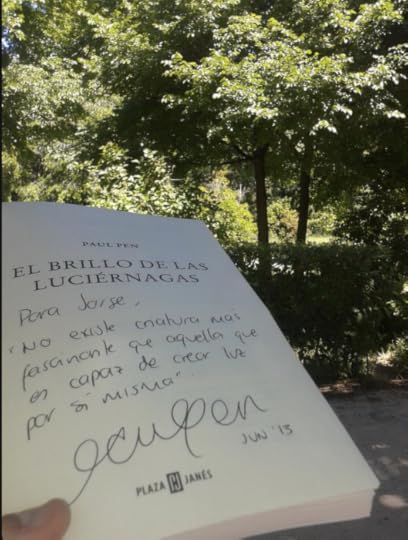 PAUL PEN
EL BRILLO DE LAS
LUCIÉRNAGAS
Para Jorge,
"No existe criatura más
fascinante que aquella que
es capaz de crear luz
por sí misma".
JUN '13
PLAZA PJ JANÉS